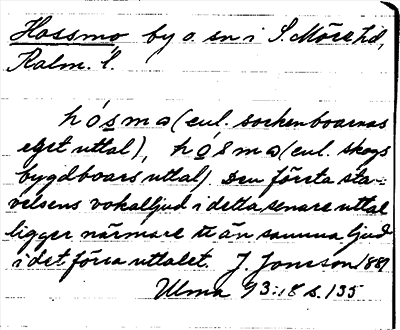 Hossmo by o. sn i S. Möre hd,
Kalm. l.
hósmo (enl. sockenboarnas
eget uttal), hósmo (enl. skogs
bygdboars uttal). Den första sta-
velsens vokalljud i detta senare uttal
ligger närmare än samma ljud
i det förra uttalet. J. Jonsson 1881
Ulma 93:18 s. 135